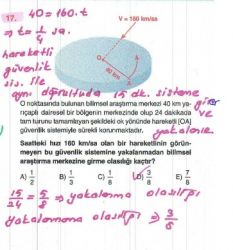 17. 40=160.t
V = 160 km/sa
⇒ t = 1/4 sa.
hareketli
güvenlik
sis. ile
O
A
80 km
aynı doğrultuda 15 dk. sisteme girer
O noktasında bulunan bilimsel araştırma merkezi 40 km ya-
ve
rıçaplı dairesel bir bölgenin merkezinde olup 24 dakikada
tam turunu tamamlayan şekildeki ok yönünde hareketli [OA]
güvenlik sistemiyle sürekli korunmaktadır.
yakalanır
Saatteki hızı 160 km/sa olan bir hareketlinin görün-
meyen bu güvenlik sistemine yakalanmadan bilimsel
araştırma merkezine girme olasılığı kaçtır?
A) 1/2 B) 1/3 C) 1/8 D) 3/8 E) 7/8
15/24 = 5/8 ⇒ yakalanma olasılığı
Yakalanmama olasılığı ⇒ 3/8